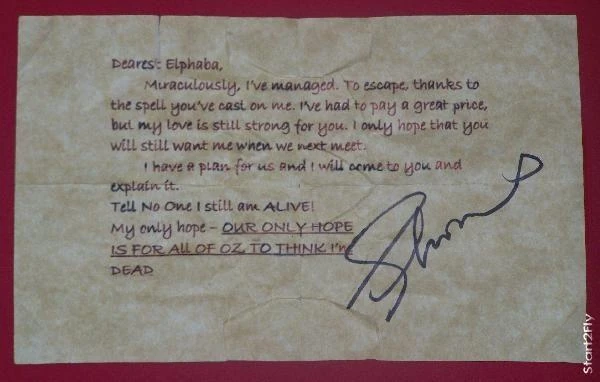 Dearest Elphaba,
Miraculously, I've managed. To escape, thanks to
the spell you've cast on me. I've had to pay a great price,
but my love is still strong for you. I only hope that you
will still want me when we next meet.
I have a plan for us and I will come to you and
explain it.
Tell No One I still am ALIVE!
My only hope - OUR ONLY HOPE
IS FOR All OF OZ TO THINK I'm
DEAD
Start2Fly